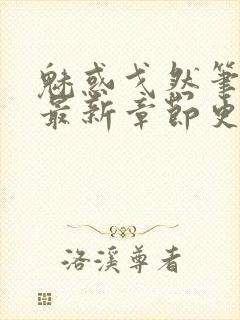 魅惑戈然筆
最新章節史
洛溪尊者